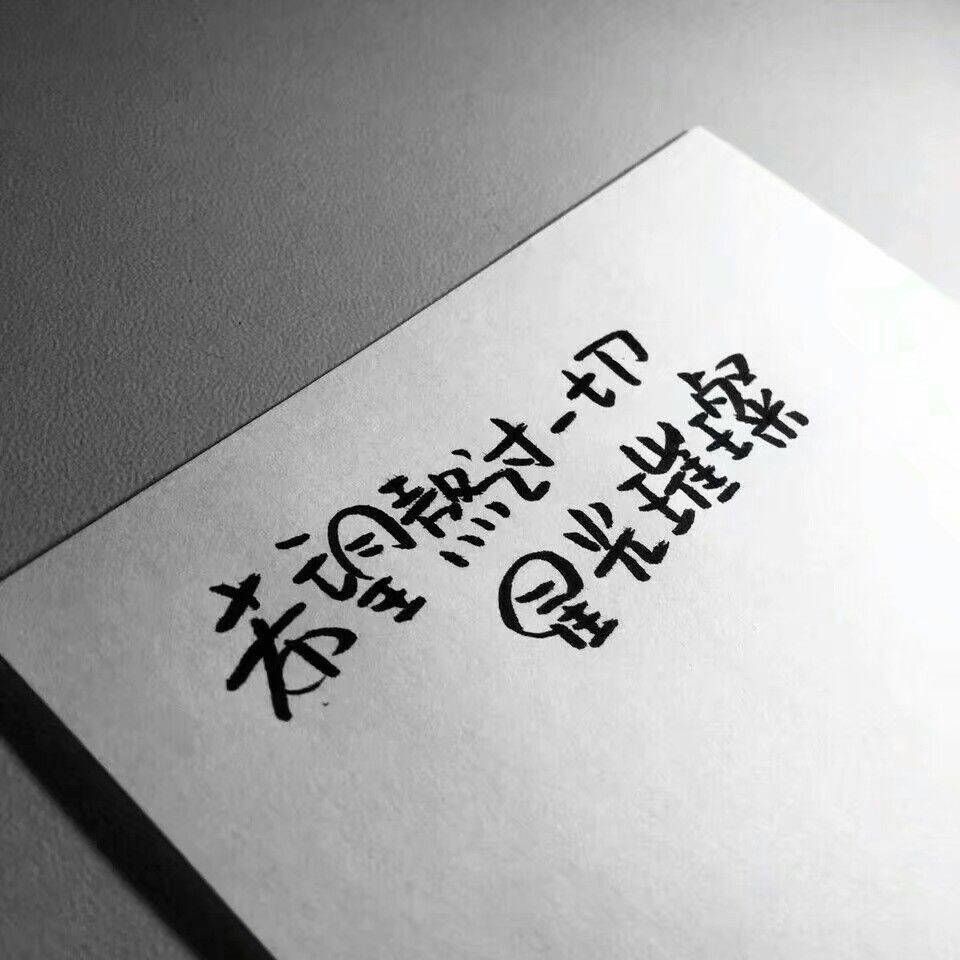 希望熬过一切
星光璀璨